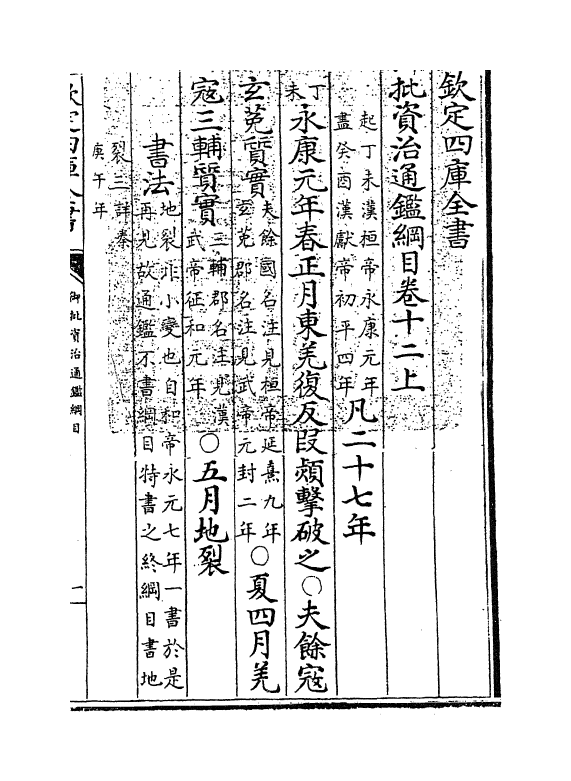 欽定四庫全書
批資治通鑑綱目卷十二上
起丁未漢桓帝永康元年
盡癸酉漢獻帝初平四年
凡二十七年
丁未
永康元年春正月東羌復反段熲擊破之○夫餘寇
玄菟質實
夫餘國名注見桓帝延熹九年
玄菟郡名注見武帝元封二年
○夏四月羌
寇三輔質實
三輔郡名注見漢
武帝征和元年
○五月地裂
書法
地裂非小變也自和帝永元七年一書於是
再見故通鑑不書綱目特書之終綱目書地
裂三詳秦
庚午年
欽定四庫全書
御批資治通鑑綱目
一